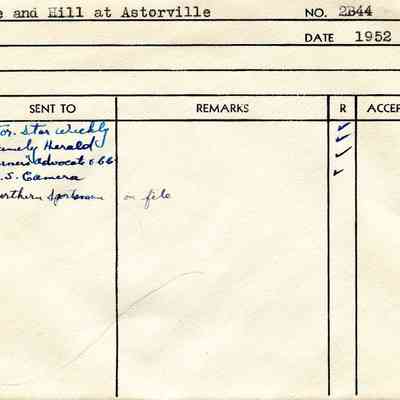 e and Hill at Astorville NO. 2B44
DATE 1952
SENT TO REMARKS R ACCEP
or. Star Weekly
amily Herald
Advocate
.S. Camera
rthern Sportsman on file